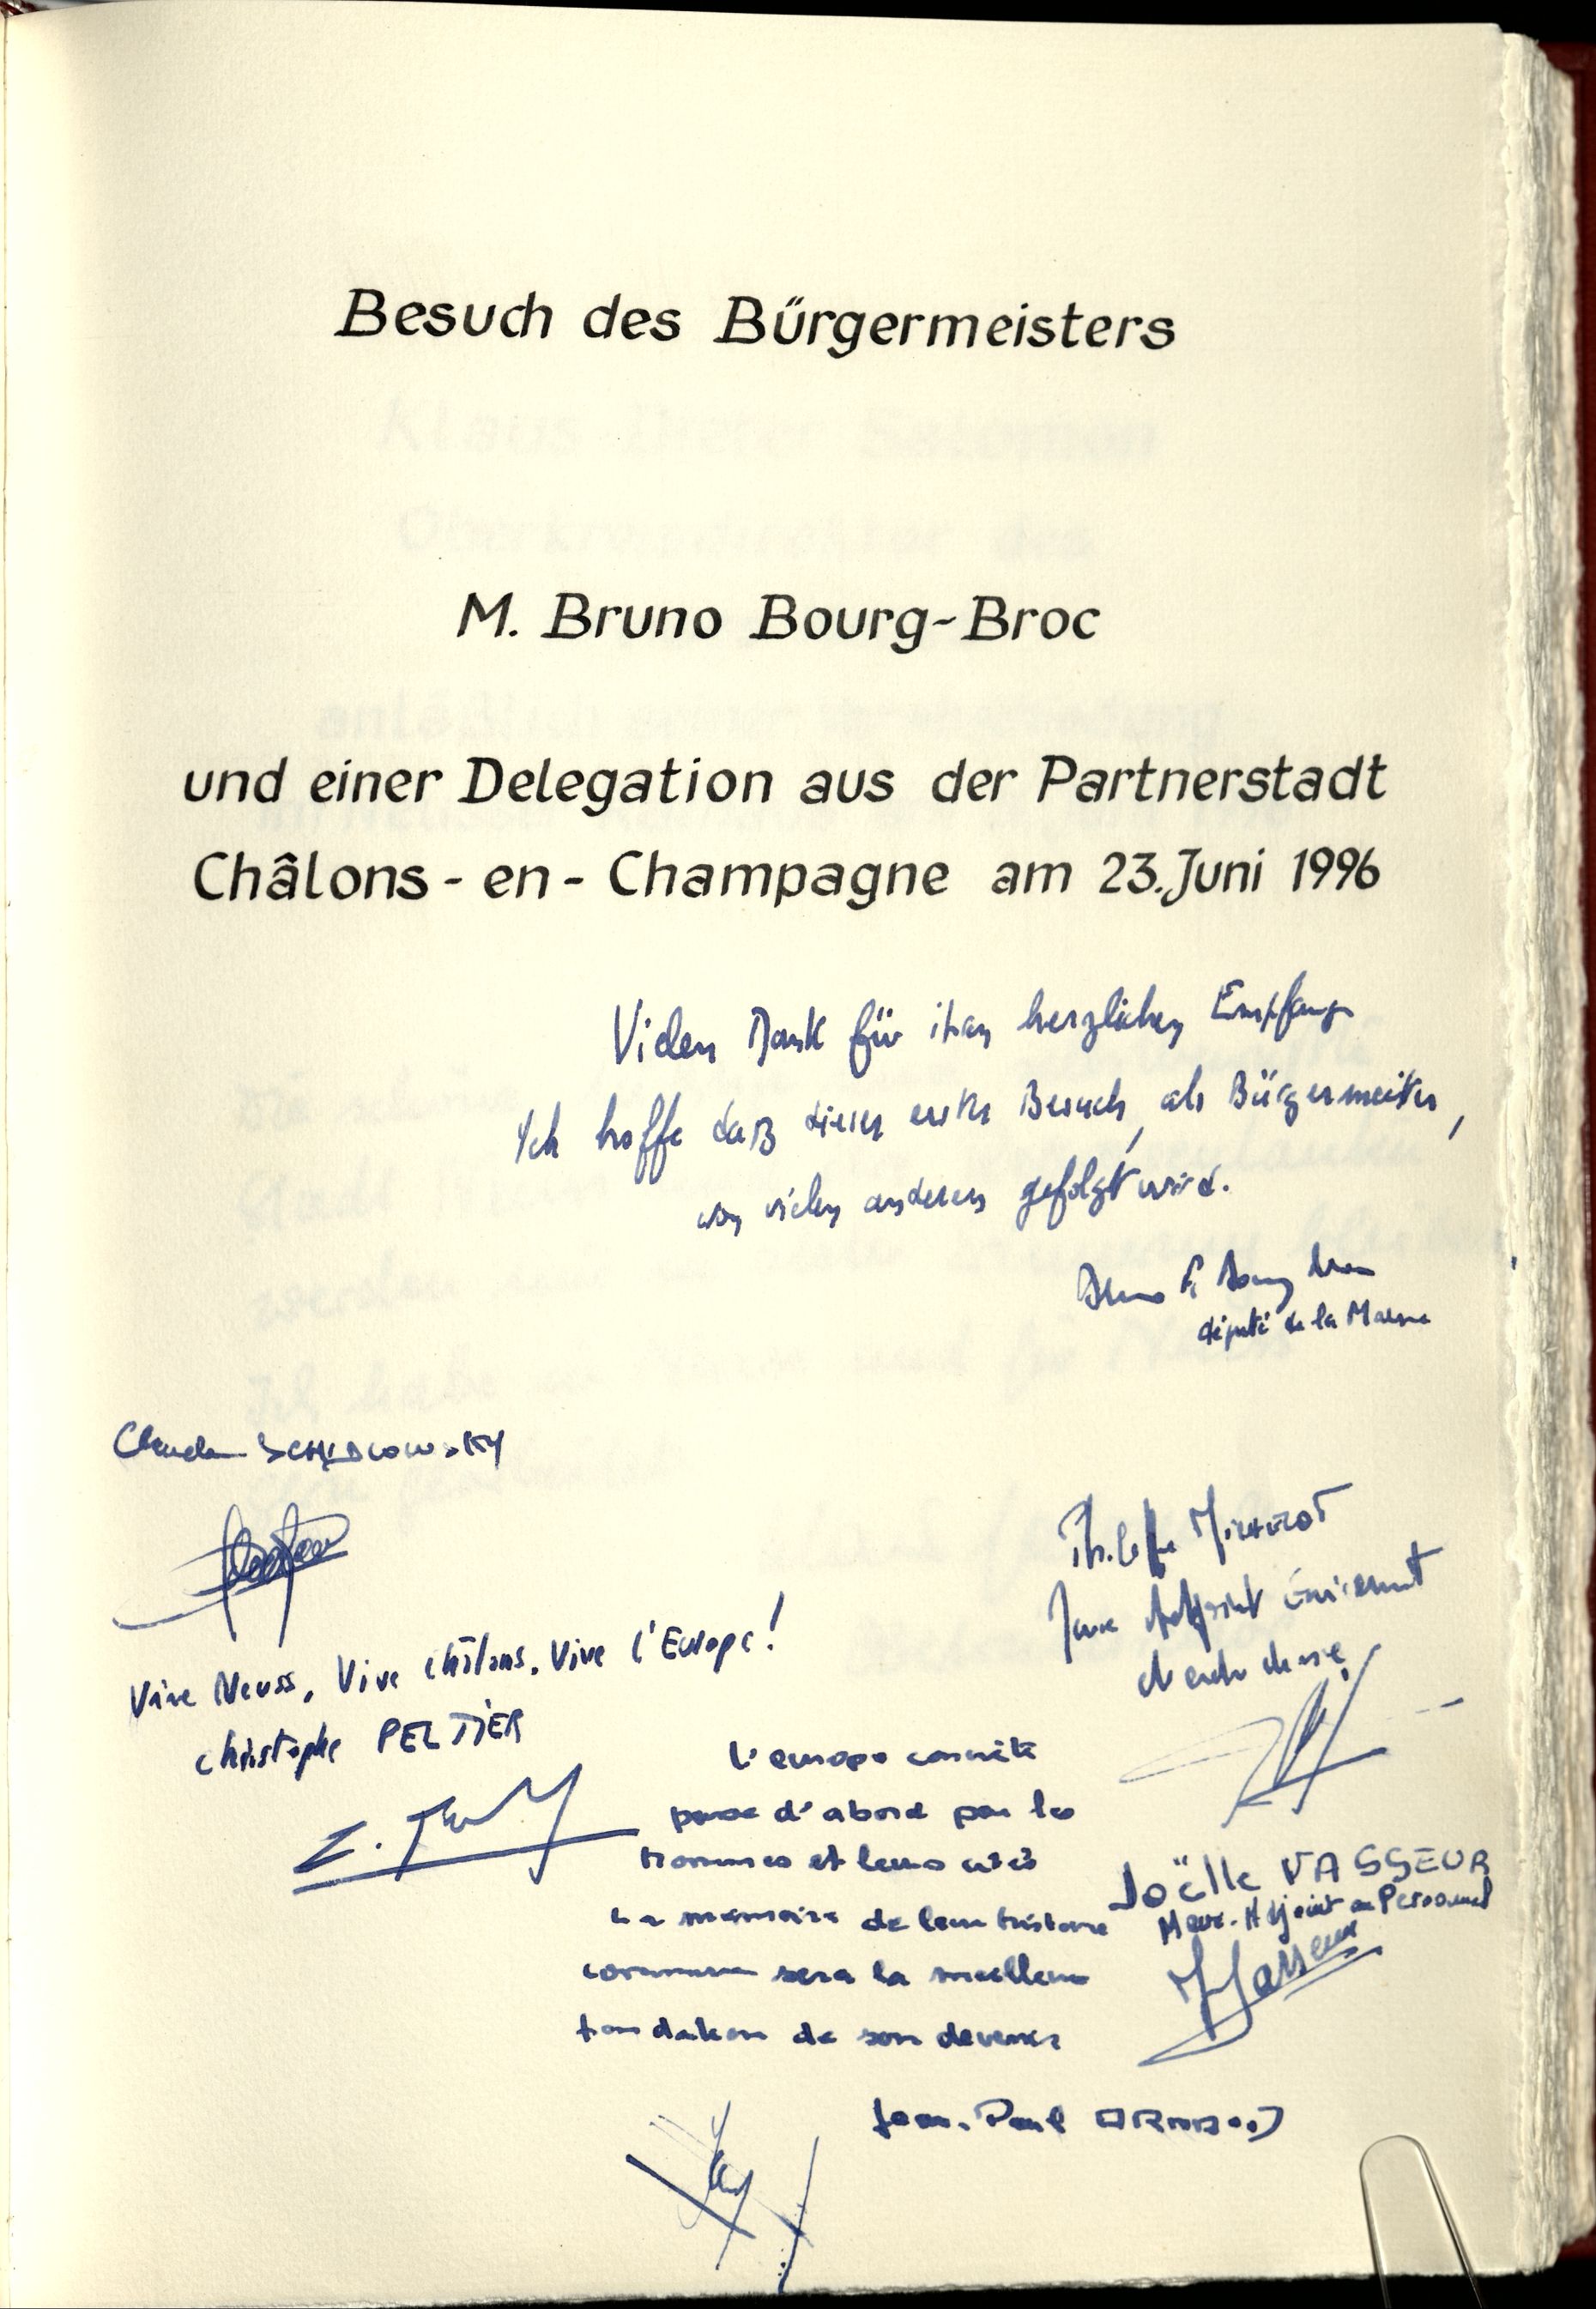 Besuch des Bürgermeisters
M. Bruno Bourg-Broc
und einer Delegation aus der Partnerstadt
Châlons-en-Champagne am 23. Juni 1996
Vielen Dank für ihren herzlichen Empfang
Ich hoffe daß dieser erster Besuch, als Bürgermeister,
von vielen anderen gefolgt wird.
Bruno Bourg Broc
député de la Marne
Claude
Vive Neuss, Vive Châlons, Vive l'Europe!
Christophe PELTIER
Philippe
Maire Adjoint Environnement
cadre de vie
L'europe concrète
passe d'abord par les
hommes et leurs cités
La mémoire de leur histoire
commune sera la meilleure
fondation de son devenir
Joëlle VASSEUR
Maire-Adjoint au Personnel
JVasseur
Jean-Paul